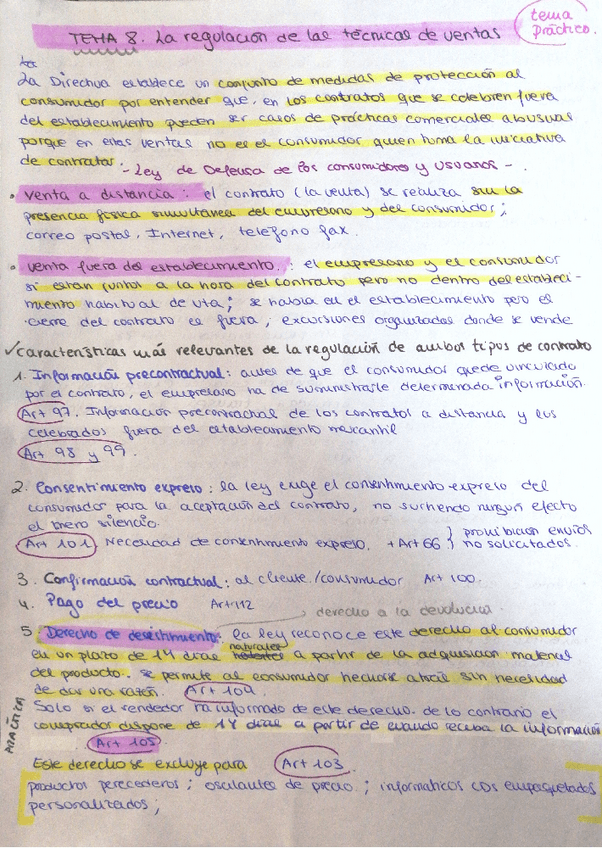 tema práctico.
TEMA 8. La regulación de las técnicas de ventas
La Directiva establece un conjunto de medidas de protección al
consumidor por entender que, en los contratos que se celebren fuera
del establecimiento pueden ser casos de prácticas comerciales abusivas
porque en estas ventas no es el consumidor quien toma la iniciativa
de contratar. - Ley de Defensa de los consumidores y usuarios -.
• venta a distancia: el contrato (la venta) se realiza sin la
presencia física simultánea del empresario y del consumidor;
correo postal, Internet, teléfono fax.
• venta fuera del establecimiento: el empresario y el consumidor
si están juntos a la hora del contrato pero no dentro del estableci-
miento habitual de vta; se habla en el establecimiento pero el
cierre del contrato es fuera; excursiones organizadas donde se vende
✓características más relevantes de la regulación de ambos tipos de contrato
1. Información precontractual: antes de que el consumidor quede vinculado
por el contrato, el empresario ha de suministrarle determinada información.
Art 97. Información precontractual de los contratos a distancia y los
celebrados fuera del establecimiento mercantil
Art 98 y 99.
2. Consentimiento expreso: la ley exige el consentimiento expreso del
consumidor para la aceptación del contrato, no surtiendo ningún efecto
el mero silencio.
Art 101 Necesidad de consentimiento expreso. + Art 66 } prohibición envíos no solicitados.
3. Confirmación contractual: al cliente/consumidor Art 100.
4. Pago del precio Art 112
derecho a la devolución.
5 Derecho de desistimiento: la ley reconoce este derecho al consumidor
en un plazo de 14 días naturales a partir de la adquisición material
del producto. Se permite al consumidor hecharse atrás sin necesidad
de dar una razón. Art 104
Solo si el vendedor ha informado de este derecho. de lo contrario el
comprador dispone de 14 días a partir de cuando reciba la información
Art 105.
PRÁCTICA
Este derecho se excluye para Art 103
productos perecederos; oscilantes de precio; informáticos CDs empaquetados
personalizados;